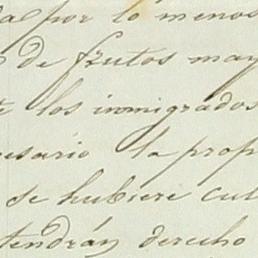 por lo menos
de frutos may
los inmigrados
esario la prop
se hubiere cul
tendrán derecho